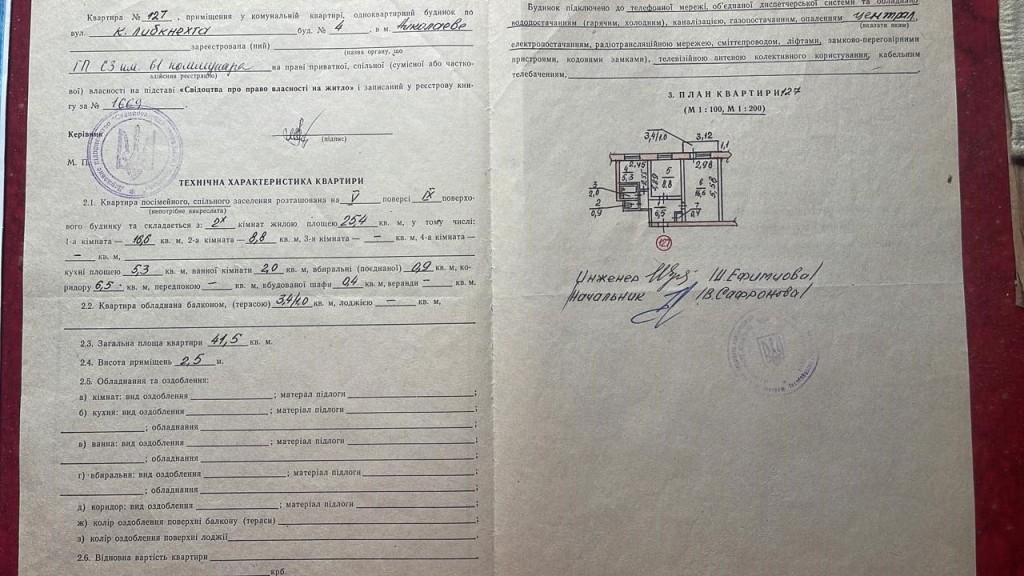 Квартира № 127, приміщення у комунальній квартирі, одноквартирний будинок по
вул. К. Либкнехта буд. № 4 в м. Николаеве
зареєстрована (ний)
(назва органу, що
ГП СЗ им. 61 коммунара на праві приватної, спільної (сумісної або частко-
здійснив реєстрацію)
вої) власності на підставі «Свідоцтва про право власності на житло» і записаний у реєстрову кни-
гу за № 1669
Керівник
(підпис)
М. П.
ТЕХНІЧНА ХАРАКТЕРИСТИКА КВАРТИРИ
2.1. Квартира посімейного, спільного заселення розташована на V поверсі IX поверхо-
(непотрібне викреслити)
вого будинку та складається з: 2х кімнат жилою площею 25,4 кв. м, у тому числі:
1-а кімната — 16,6 кв. м, 2-а кімната — 8,8 кв. м, 3-я кімната — — кв. м, 4-а кімната —
— кв. м,
кухні площею 5,3 кв. м, ванної кімнати 2,0 кв. м, вбиральні (поєднаної) 0,9 кв. м, ко-
ридору 6,5 кв. м, передпокою — кв. м, вбудованої шафи 0,4 кв. м, веранди — кв. м.
2.2. Квартира обладнана балконом, (терасою) 3,4/1.0 кв. м, лоджією — кв. м,
2.3. Загальна площа квартири 41,5 кв. м.
2.4. Висота приміщень 2,5 м.
2.5. Обладнання та оздоблення:
а) кімнат: вид оздоблення ; матерал підлоги ;
б) кухня: вид оздоблення ; матеріал підлоги
; обладнання ;
в) ванна: вид оздоблення ; матеріал підлоги
; обладнання ;
г) вбиральня: вид оздоблення ; матеріал підлоги
; обладнання ;
д) коридор: вид оздоблення ; матеріал підлоги ;
ж) колір оздоблення поверхні балкону (тераси) ;
з) колір оздоблення поверхні лоджії .
2.6. Відновна вартість квартири
крб.
Будинок підключено до телефонної мережі, об'єднаної диспетчерської системи та обладнано
водопостачанням (гарячим, холодним), каналізацією, газопостачанням, опаленням централ.
(вказати яким)
електропостачанням, радіотрансляційною мережею, сміттєпроводом, ліфтами, замково-переговорними
пристроями, кодовими замками), телевізійною антеною колективного користування, кабельним
телебаченням,
3. ПЛАН КВАРТИРИ 127
(М 1 : 100, М 1 : 200)
3,4/1.0 3,12
1,1
2,45 2,98
4 5,3
5 8,8
6 16,6
5,58
3 2,0
2 0,9
6,5
7 0,4
127
Инженер Ш.Ефимова
Начальник В.Сафронова